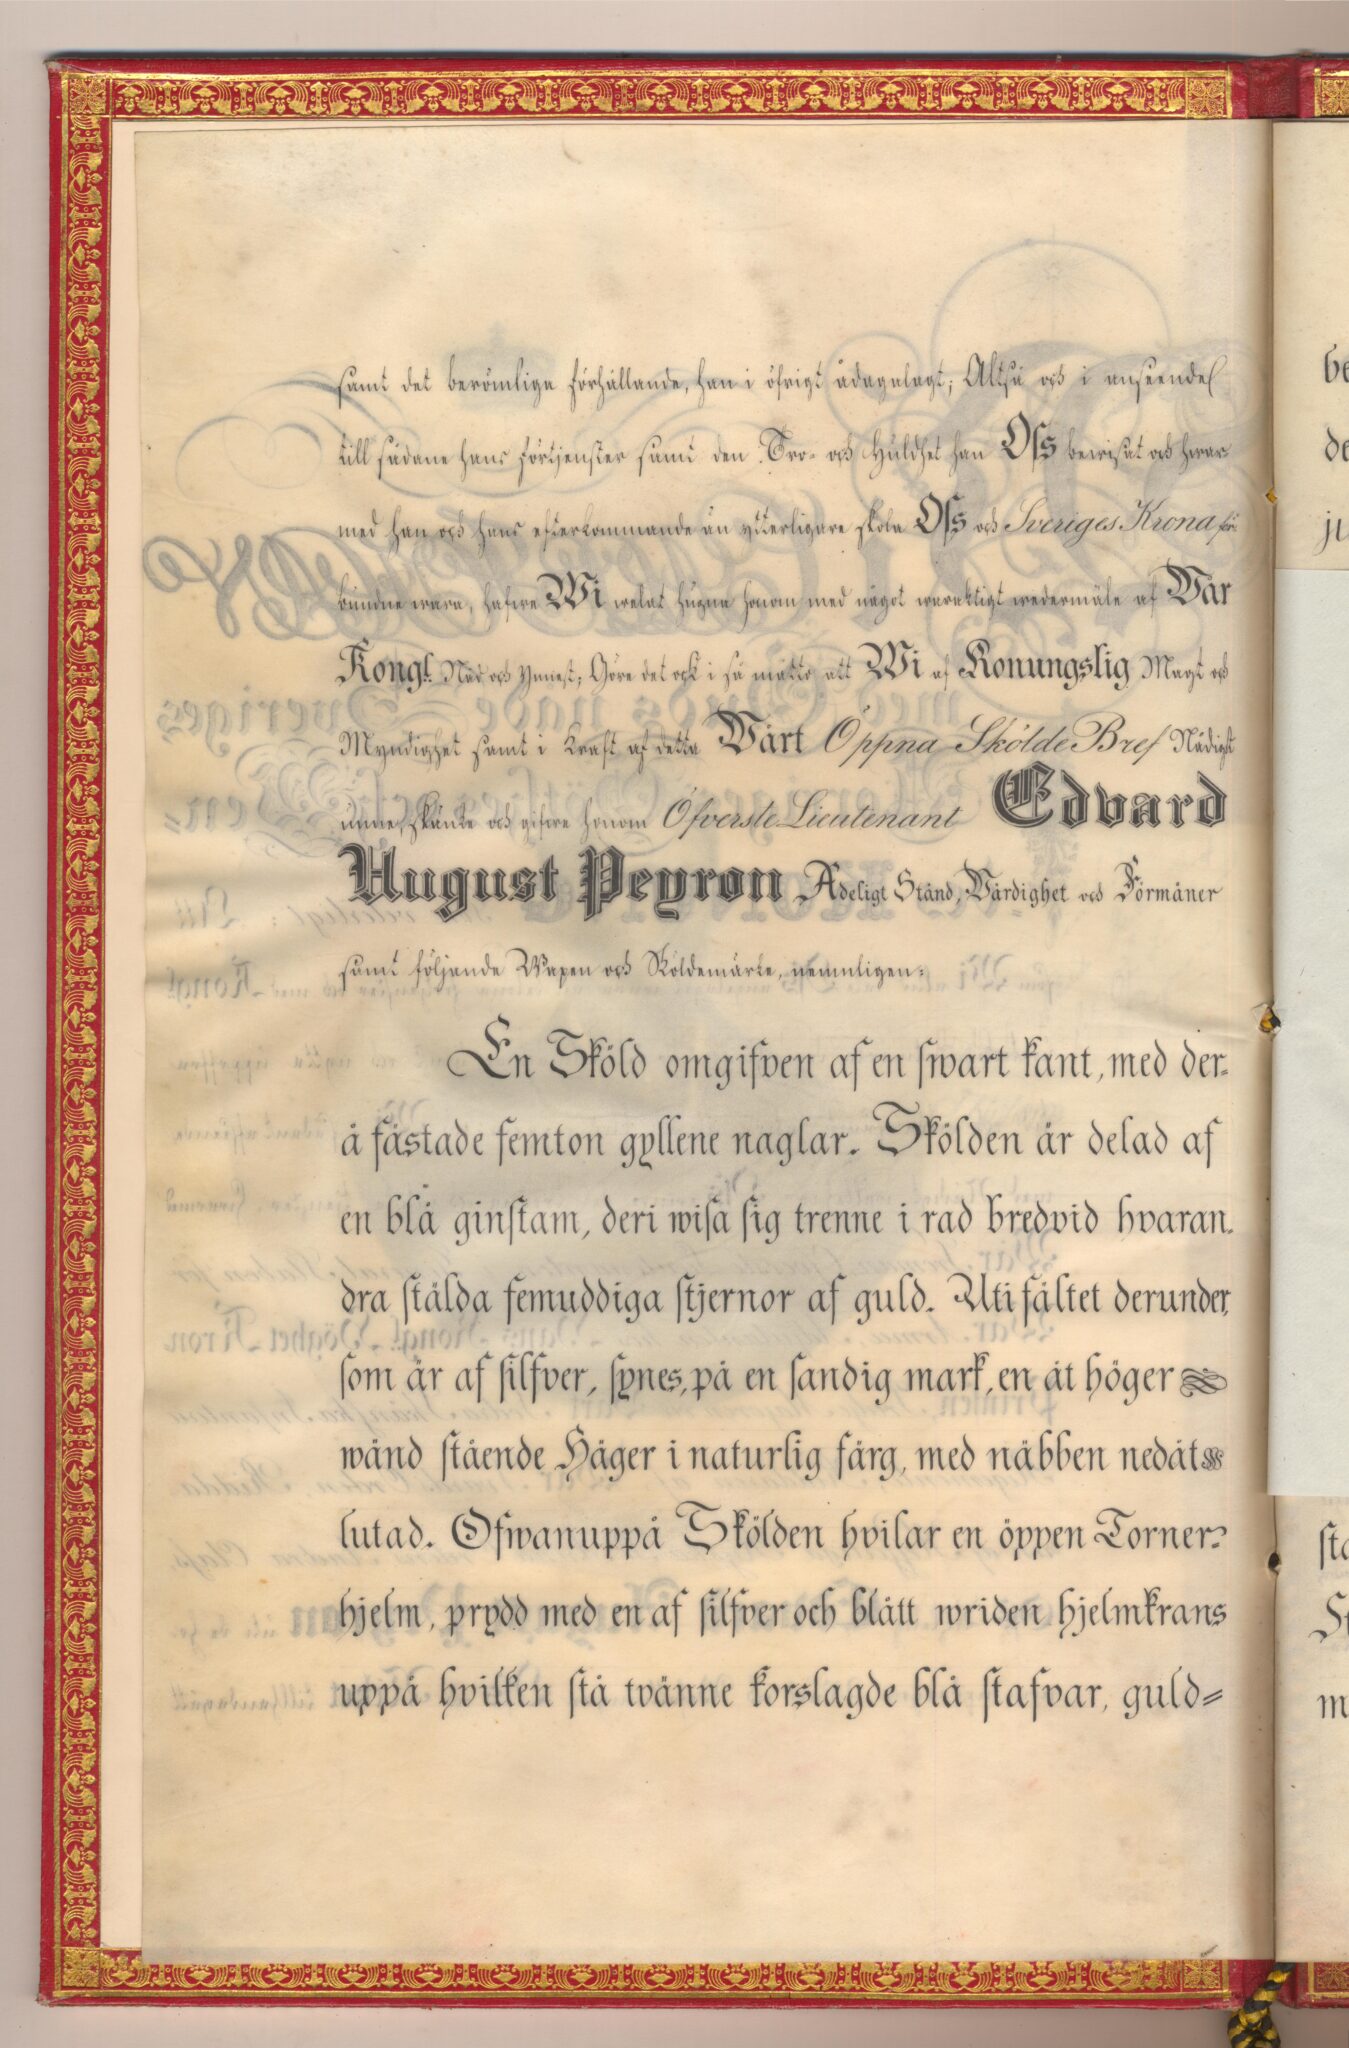 samt det berömliga förhållande, han i öfrigt ådagalagt; Altså och i anseende
till sådane hans förtjenster samt den Tro- och Huldhet han Oss bewisat och hwar-
med han och hans efterkommande än ytterligare skola Oss och Sveriges Krona för-
bundne wara, hafwe Wi welat hugna honom med något waraktigt wedermäle af Vår
Kongl. Nåd och Ynnest; Göre det ock i så måtto att Wi af Konungslig Magt och
Myndighet samt i Kraft af detta Vårt Öppna Skölde Bref Nådigst
unne, skänke och gifwe honom Öfverste Lieutenant Edvard
August Peyron Adeligt Stånd, Värdighet och Förmåner
samt följande Wapen och Sköldemärke, nemnligen:
En Sköld omgifven af en swart kant, med der-
å fästade femton gyllene naglar. Skölden är delad af
en blå ginstam, deri wisa sig trenne i rad bredvid hvaran-
dra stälda femuddiga stjernor af guld. Uti fältet derunder,
som är af silfver, synes, på en sandig mark, en åt höger
wänd stående Häger i naturlig färg, med näbben nedåt
lutad. Ofwanuppå Skölden hvilar en öppen Torner-
hjelm, prydd med en af silfver och blått wriden hjelmkrans
uppå hvilken stå tvänne korslagde blå stafvar, guld=
be
de
ju
sta
m